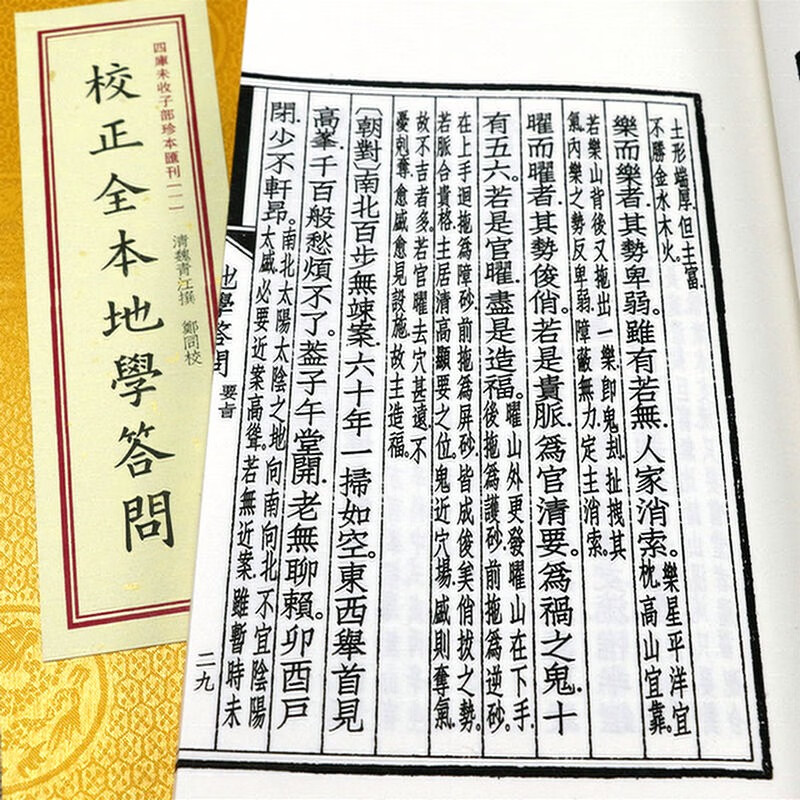 四庫未收子部珍本匯刊(一一)
校正全本地學答問
清魏青江撰 鄭同校
土形端厚.但主富.
不勝金水木火。
樂而樂者.其勢卑弱。雖有若無.人家消索。
樂星平洋宜
枕高山宜靠。
若樂山背後又拖出一樂.即鬼刦扯拽其
氣.內樂之勢反卑弱.障蔽無力.定主消索。
曜而曜者.其勢俊俏。若是貴脈.爲官清要。爲禍之鬼.十
有五六。若是官曜.盡是造福。
曜山外更發曜山在下手.
後拖爲護砂.前拖爲逆砂.
在上手迴拖爲障砂.前拖爲屏砂.皆成後美俏拔之勢。
若脈合貴格.主居清高顯要之位。鬼近穴場.盛則奪氣.
故不吉者多.若官曜去穴甚遠.不
憂剋奪.愈盛愈見設施.故主造福。
〔朝對〕南北百步無竦案.六十年一掃如空。東西舉首見
高峯.千百般愁煩不了。葢子午堂開.老無聊賴。卯酉戶
閉.少不軒昂。
南北太陽太陰之地.向南向北.不宜陰陽
太盛.必要近案高聳.若無近案.雖暫時未
地學答問
要旨
二九